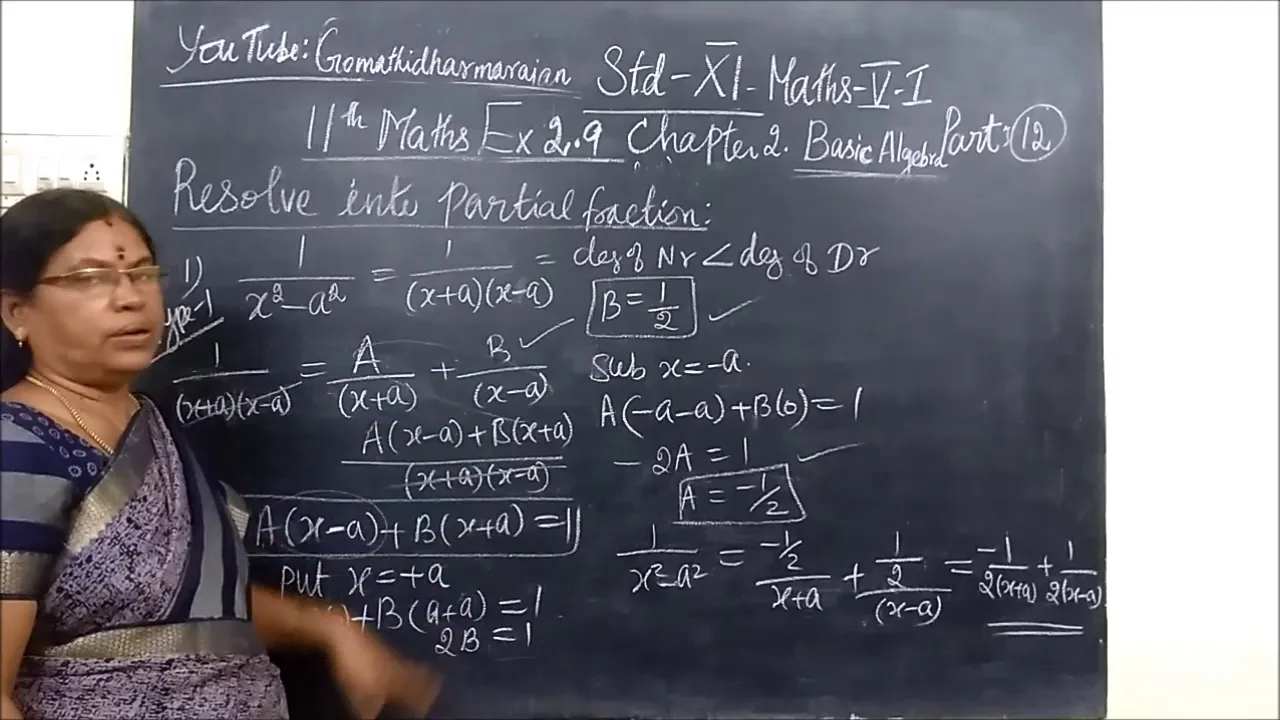 YouTube: Gomathidharmarajan Std-XI- Maths-V-I
11th Maths Ex 2.9 Chapter 2. Basic Algebra Part: 12
Resolve into partial fraction:
1) 1/(x²-a²) = 1/((x+a)(x-a)) = deg of Nr < deg of Dr
ype-1
B = 1/2 ✓
1/((x+a)(x-a)) = A/(x+a) + B/(x-a) ✓
A(x-a)+B(x+a)/((x+a)(x-a))
A(x-a)+B(x+a)=1
put x=+a
+B(a+a)=1
2B=1
sub x=-a.
A(-a-a)+B(0)=1
-2A=1 ✓
A=-1/2
1/(x²-a²) = (-1/2)/(x+a) + (1/2)/(x-a) = -1/2(x+a) + 1/2(x-a)